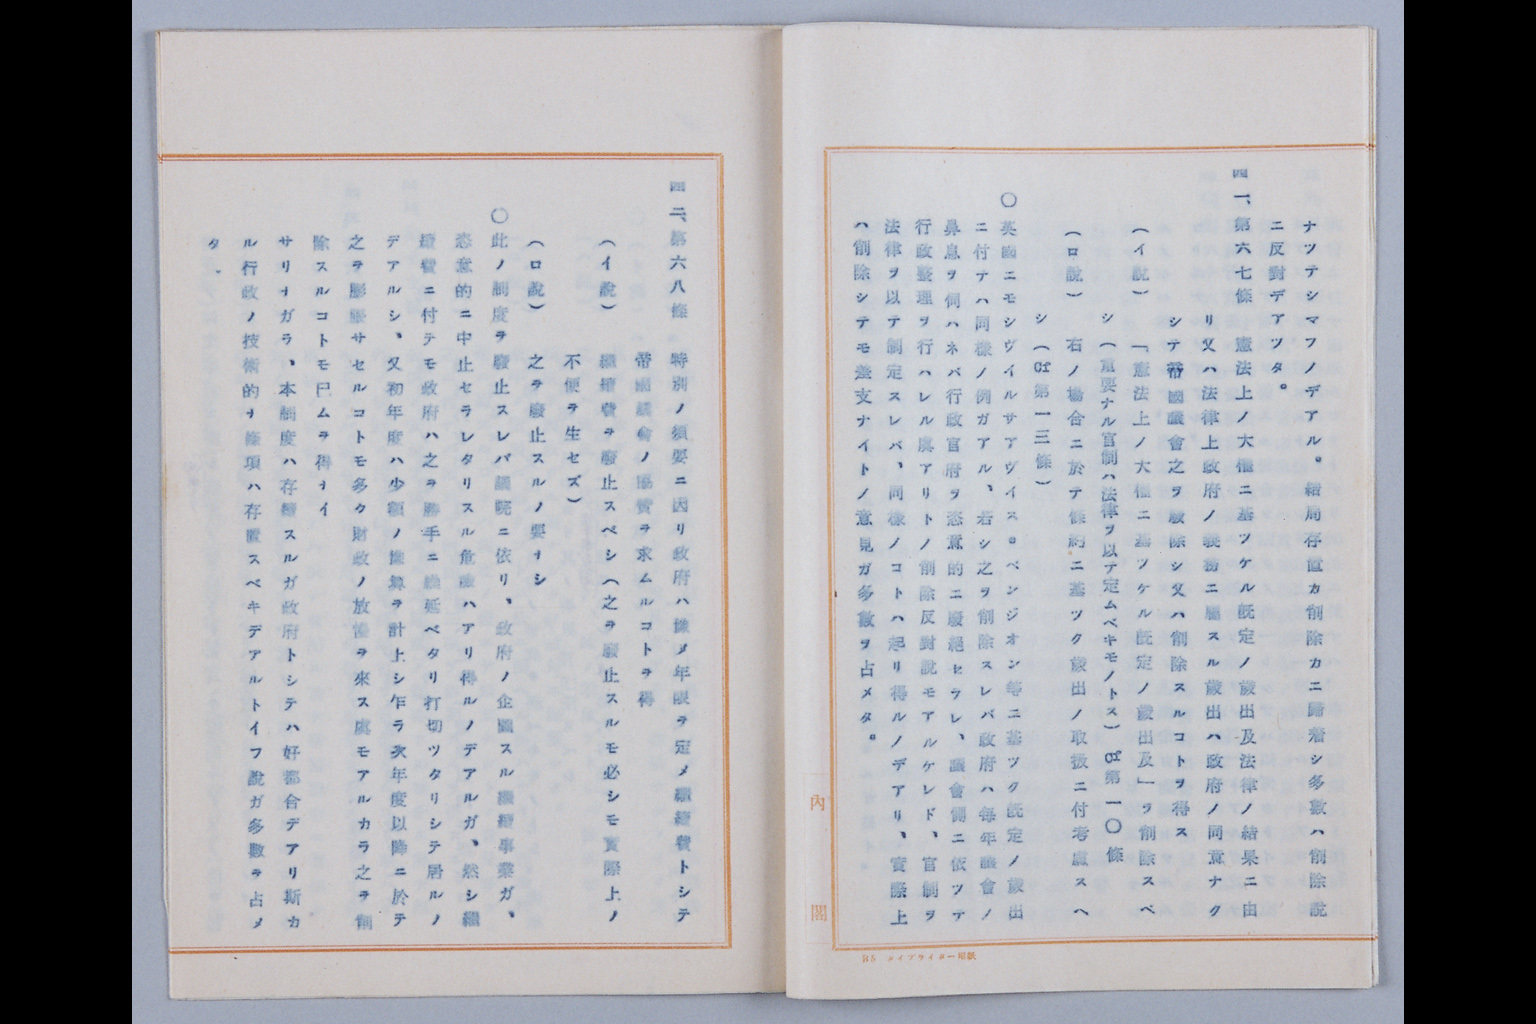 ナツテシマフノデアル。結局存置カ削除カニ歸着シ多數ハ削除說
ニ反對デアツタ。
四一、第六七條　憲法上ノ大權ニ基ツケル既定ノ歲出及法律ノ結果ニ由
リ又ハ法律上政府ノ義務ニ屬スル歲出ハ政府ノ同意ナク
シテ帝國議會之ヲ廢除シ又ハ削除スルコトヲ得ス
（イ說）　「憲法上ノ大權ニ基ツケル既定ノ歲出及」ヲ削除スベ
シ（重要ナル官制ハ法律ヲ以テ定ムベキモノトス）cf第一〇條
（ロ說）　右ノ場合ニ於テ條約ニ基ツク歲出ノ取扱ニ付考慮スヘ
シ（cf第一三條）
〇英國ニモシヴイルサアヴイス。ペンジオン等ニ基ツク既定ノ歲出
ニ付テハ同樣ノ例ガアル、若シ之ヲ削除スレバ政府ハ每年議會ノ
鼻息ヲ伺ハネバ行政官府ヲ恣意的ニ廢絕セラレ、議會側ニ依ツテ
行政整理ヲ行ハレル虞アリトノ削除反對說モアルケレド、官制ヲ
法律ヲ以テ制定スレバ、同樣ノコトハ起リ得ルノデアリ、實際上
ハ削除シテモ差支ナイトノ意見ガ多數ヲ占メタ。
內閣
B5 タイプライター用紙
四二、第六八條　特別ノ須要ニ因リ政府ハ豫メ年限ヲ定メ繼續費トシテ
帝國議會ノ協贊ヲ求ムルコトヲ得
（イ說）　繼續費ヲ廢止スベシ（之ヲ廢止スルモ必シモ實際上ノ
不便ヲ生セズ）
（ロ說）　之ヲ廢止スルノ要ナシ
〇此ノ制度ヲ廢止スレバ議院ニ依リ、政府ノ企圖スル繼續事業ガ、
恣意的ニ中止セラレタリスル危險ハアリ得ルノデアルガ、然シ繼
續費ニ付テモ政府ハ之ヲ勝手ニ繰延ベタリ打切ツタリシテ居ルノ
デアルシ、又初年度ハ少額ノ豫算ヲ計上シ乍ラ次年度以降ニ於テ
之ヲ膨脹サセルコトモ多ク財政ノ放漫ヲ來ス虞モアルカラ之ヲ削
除スルコトモ已ムヲ得ナイ
サリナガラ、本制度ハ存續スルガ政府トシテハ好都合デアリ斯カ
ル行政ノ技術的ナ條項ハ存置スベキデアルトイフ說ガ多數ヲ占メ
タ．